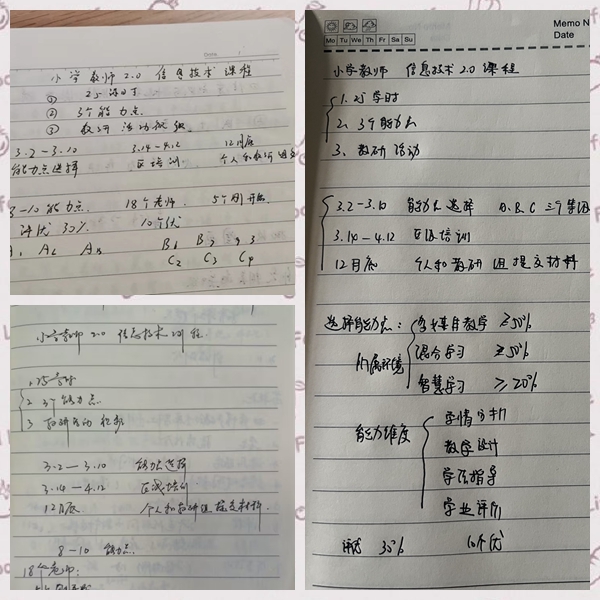 小学教师2.0 信息技术课程
① 25课时
② 3个能力点
③ 教研活动
3.2-3.10 3.14-4.12 12月底
能力点选择 区培训 个人和教研组
8-10能力点 18个老师 5个刚开始
评优30% 10个优
A2 A3 B1 B2 3
C2 C3 C4
小学教师2.0 信息技术课程
1. 25学时
2. 3个能力点
3 教研活动
3.2-3.10 能力点选择
3.14-4.12 区级培训
12月底 个人和教研组提交材料
8-10 能力点
18个老师:
Memo N
Date
Mo Tu We Th Fr Sa Su
小学教师 信息技术2.0课程
1. 25学时
2. 3个能力点
3. 教研活动
3.2-3.10 能力点选择 A.B.C 三个
3.14-4.12 区级培训
12月底 个人和教研组提交材料
选择能力点: 多媒体教学 ≥50%
所属环境 混合学习 ≥50%
智慧学习 ≥20%
能力维度 学情分析
教学设计
学法指导
学业评价
评优 30% 10个优